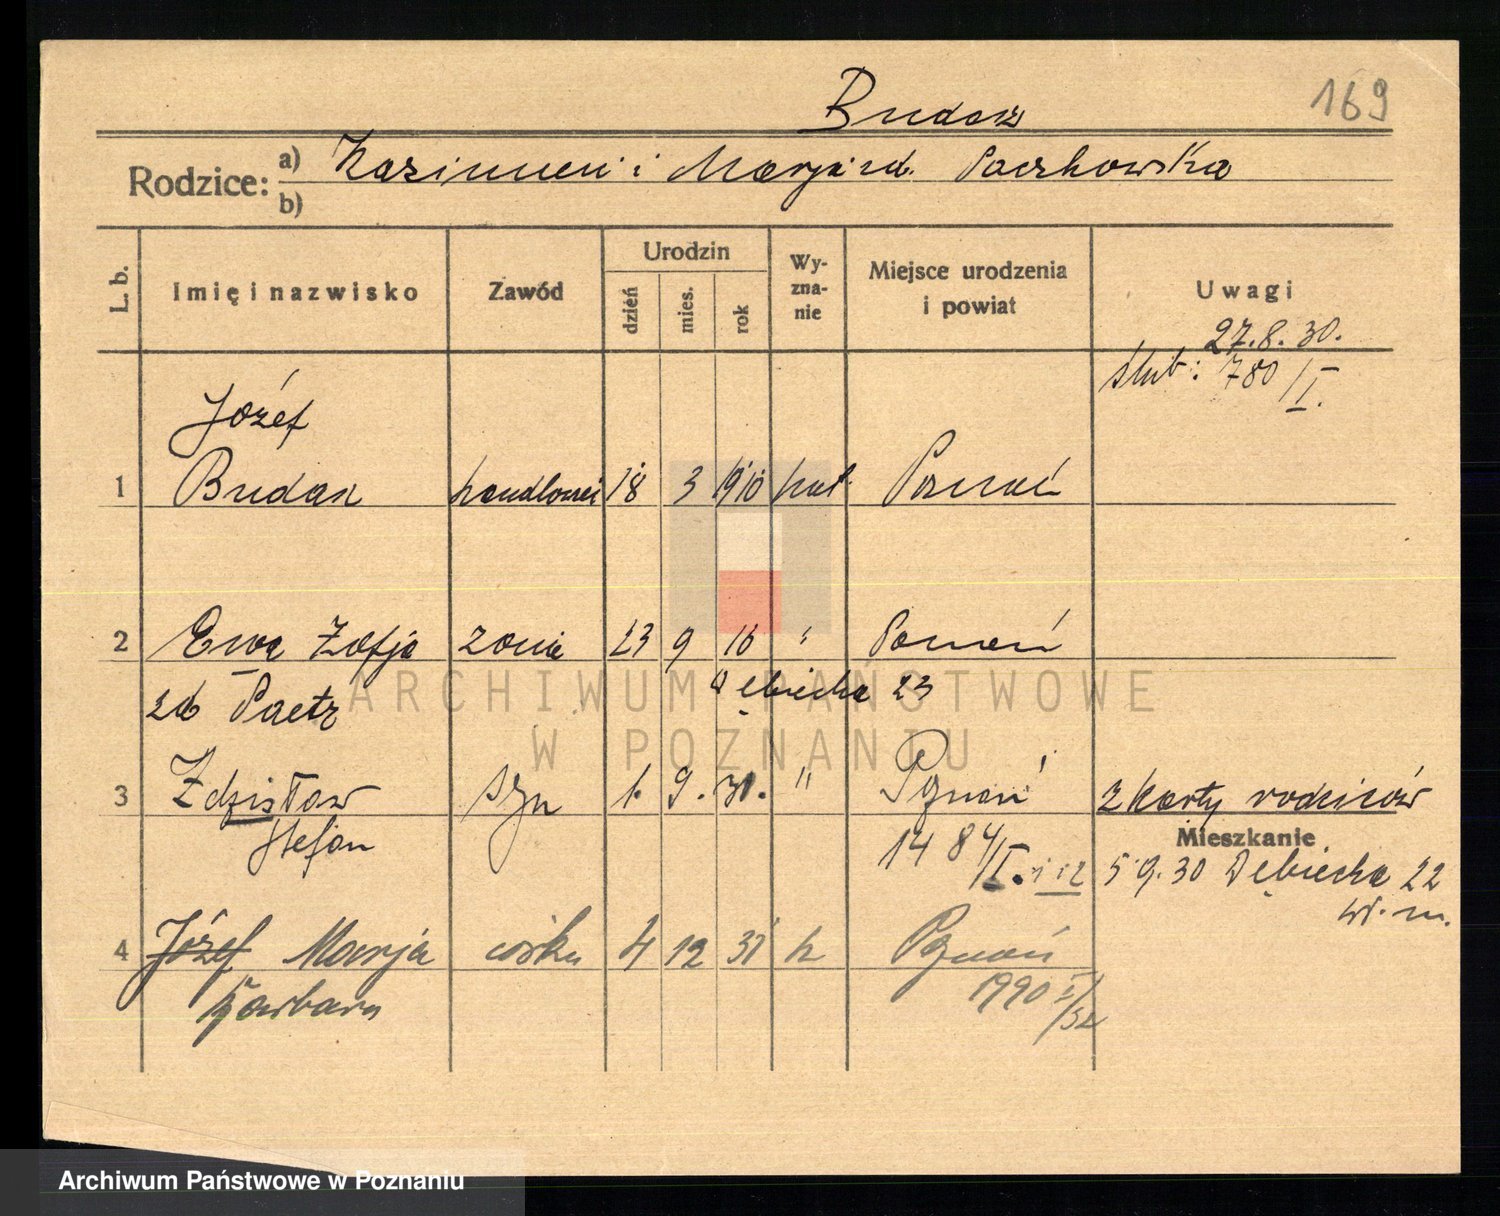 169
Budasz
Rodzice: a) Kazimierz i Marja zd. Paczkowska
b)
L. b. Imię i nazwisko Zawód Urodzin dzień mies. rok Wyznanie Miejsce urodzenia i powiat Uwagi
27.8.30.
ślub: 780/I.
Józef
1 Budasz handlowiec 18 3 1910 kat. Poznań
2 Ewa Zofja żona 23 9 10 " Poznań
zd Paetz Dębiecka 23
3 Zdzisław syn 1. 9. 30. " Poznań z karty rodziców
Stefan 1484/I.
Mieszkanie
5 9.30 Dębiecka 22
w. m.
4 Józef Marja córka 4 12 31 k Poznań
Barbara 1990 I/32
ARCHIWUM PAŃSTWOWE
W POZNANIU
Archiwum Państwowe w Poznaniu